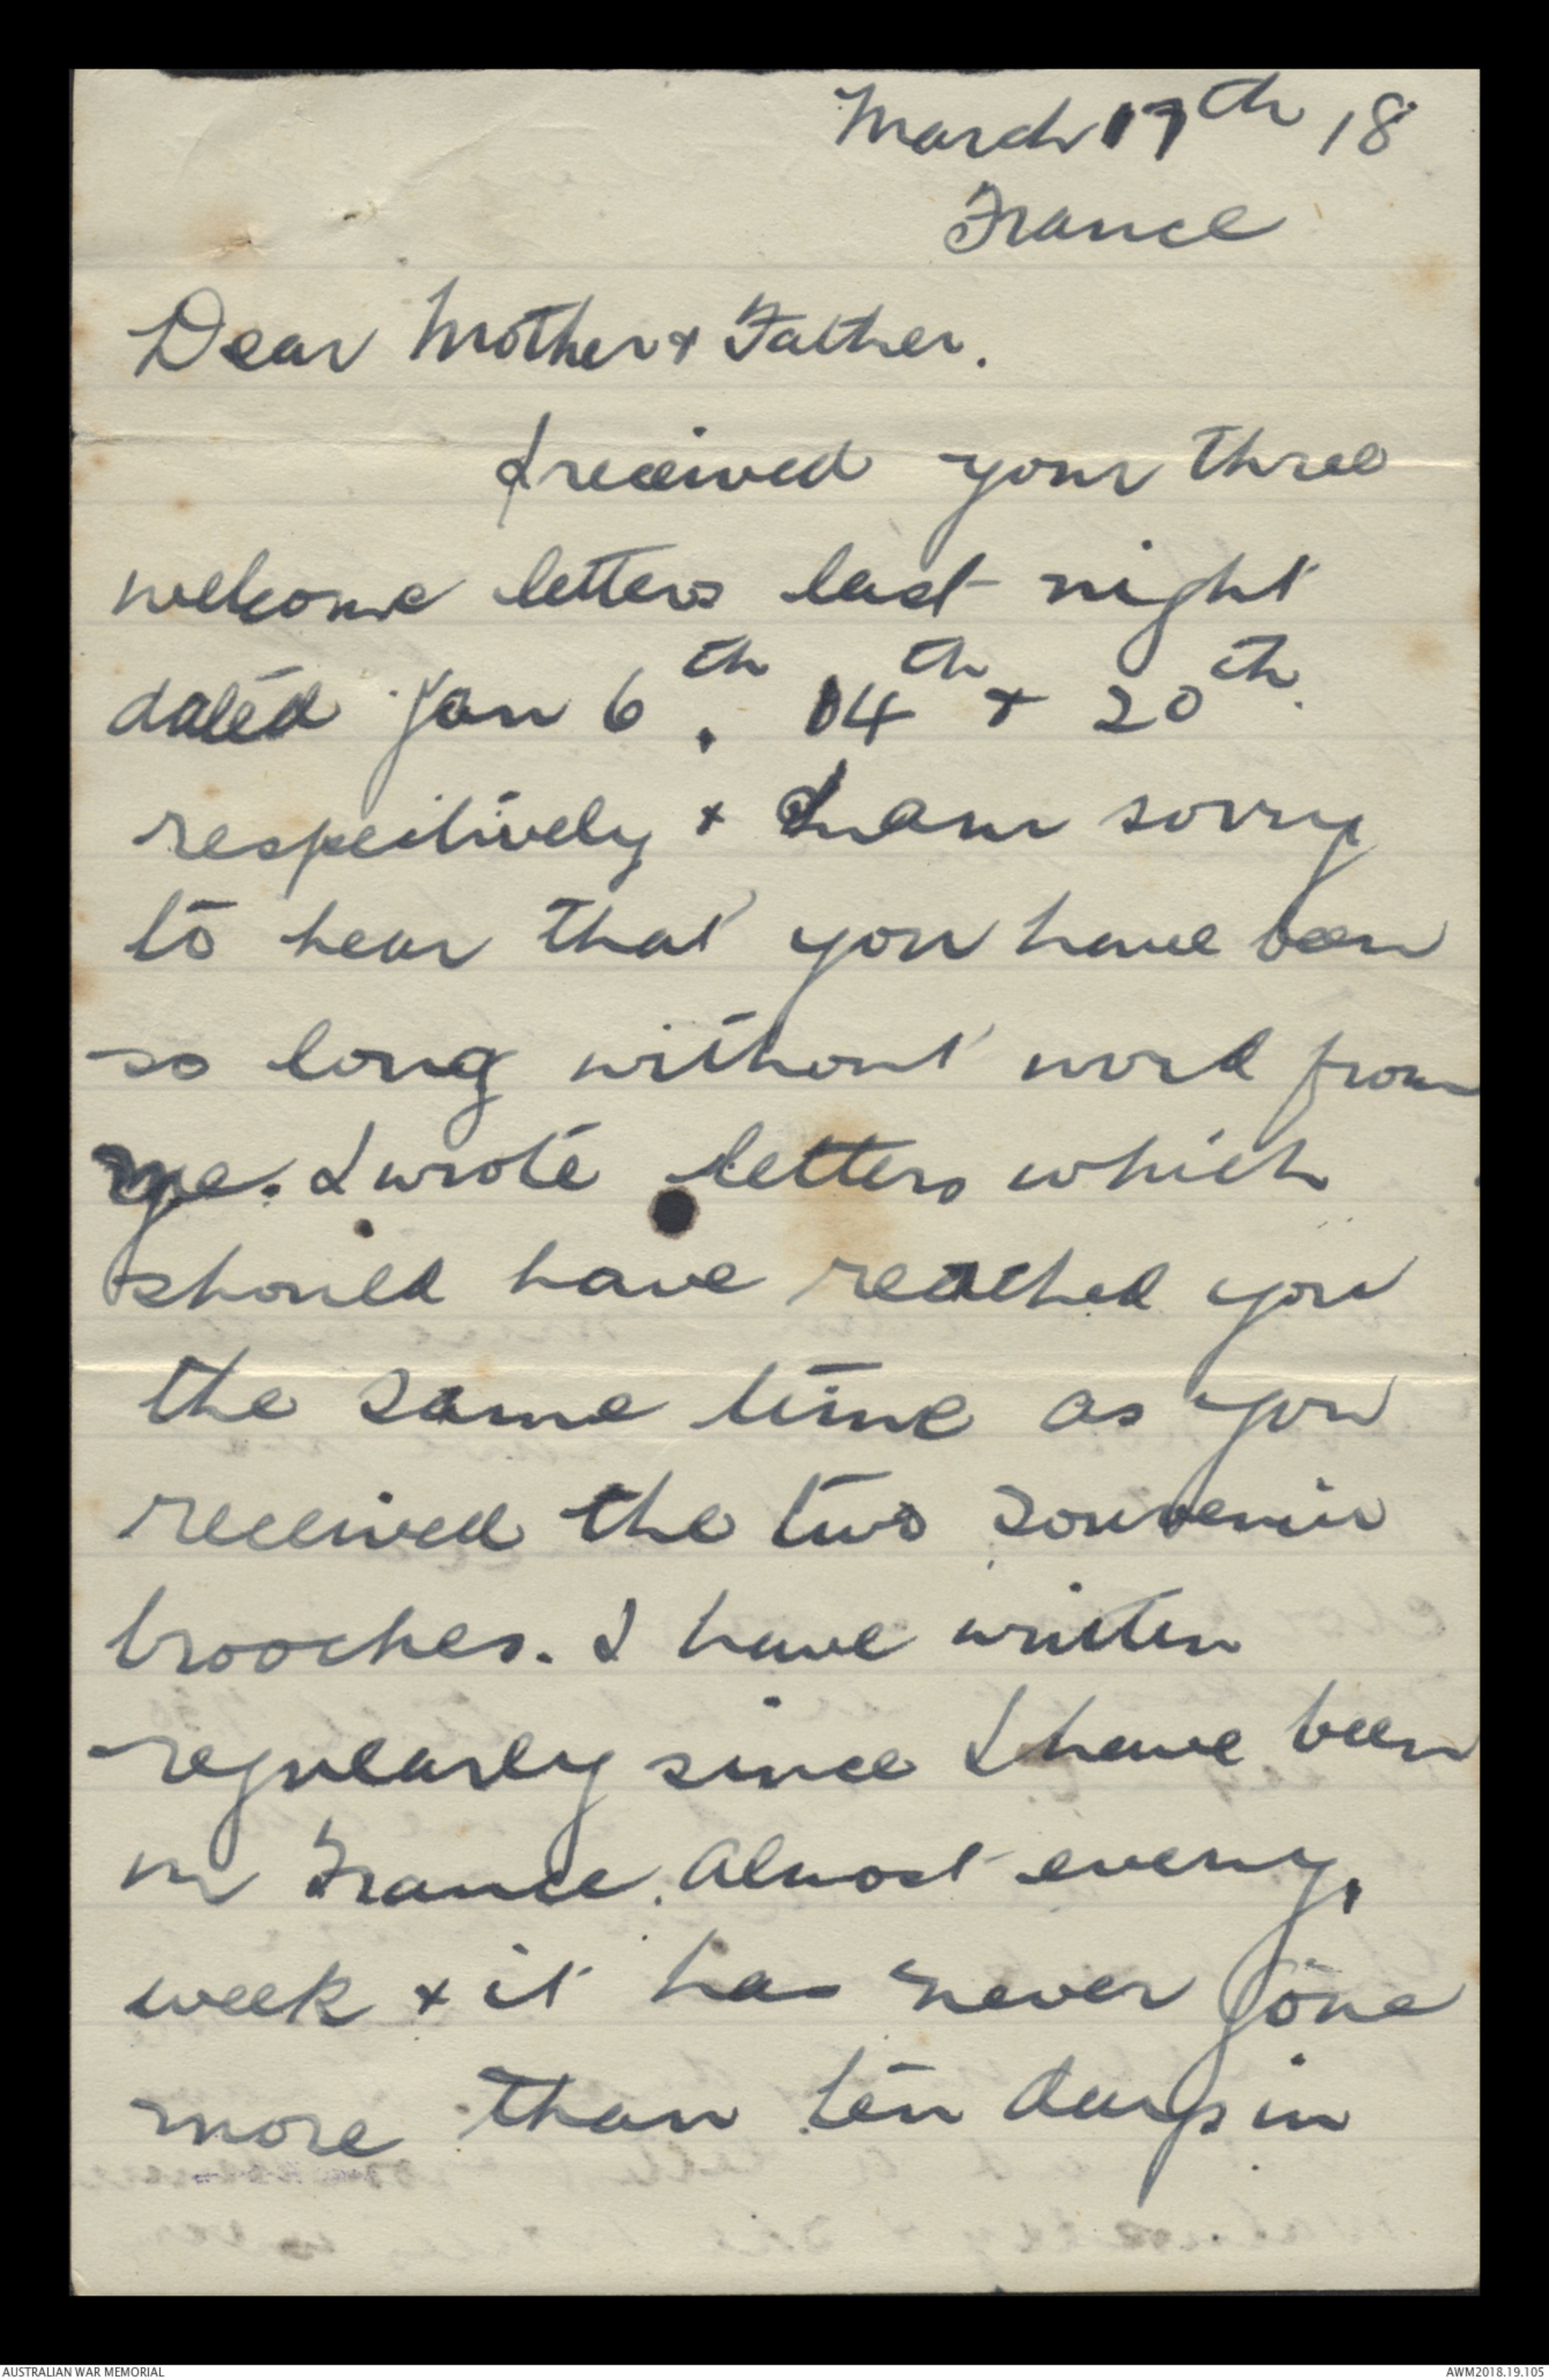 March 17th 18
France
Dear Mother & Father.
I received your three
welcome letters last night
dated Jan 6th, 14th & 20th.
respectively & I am sorry
to hear that you have been
so long without word from
me. I wrote letters which
should have reached you
the same time as you
received the two souvenir
brooches. I have written
regularly since I have been
in France. Almost every,
week & it has never gone
more than ten days in
AUSTRALIAN WAR MEMORIAL
AWM2018.19.105